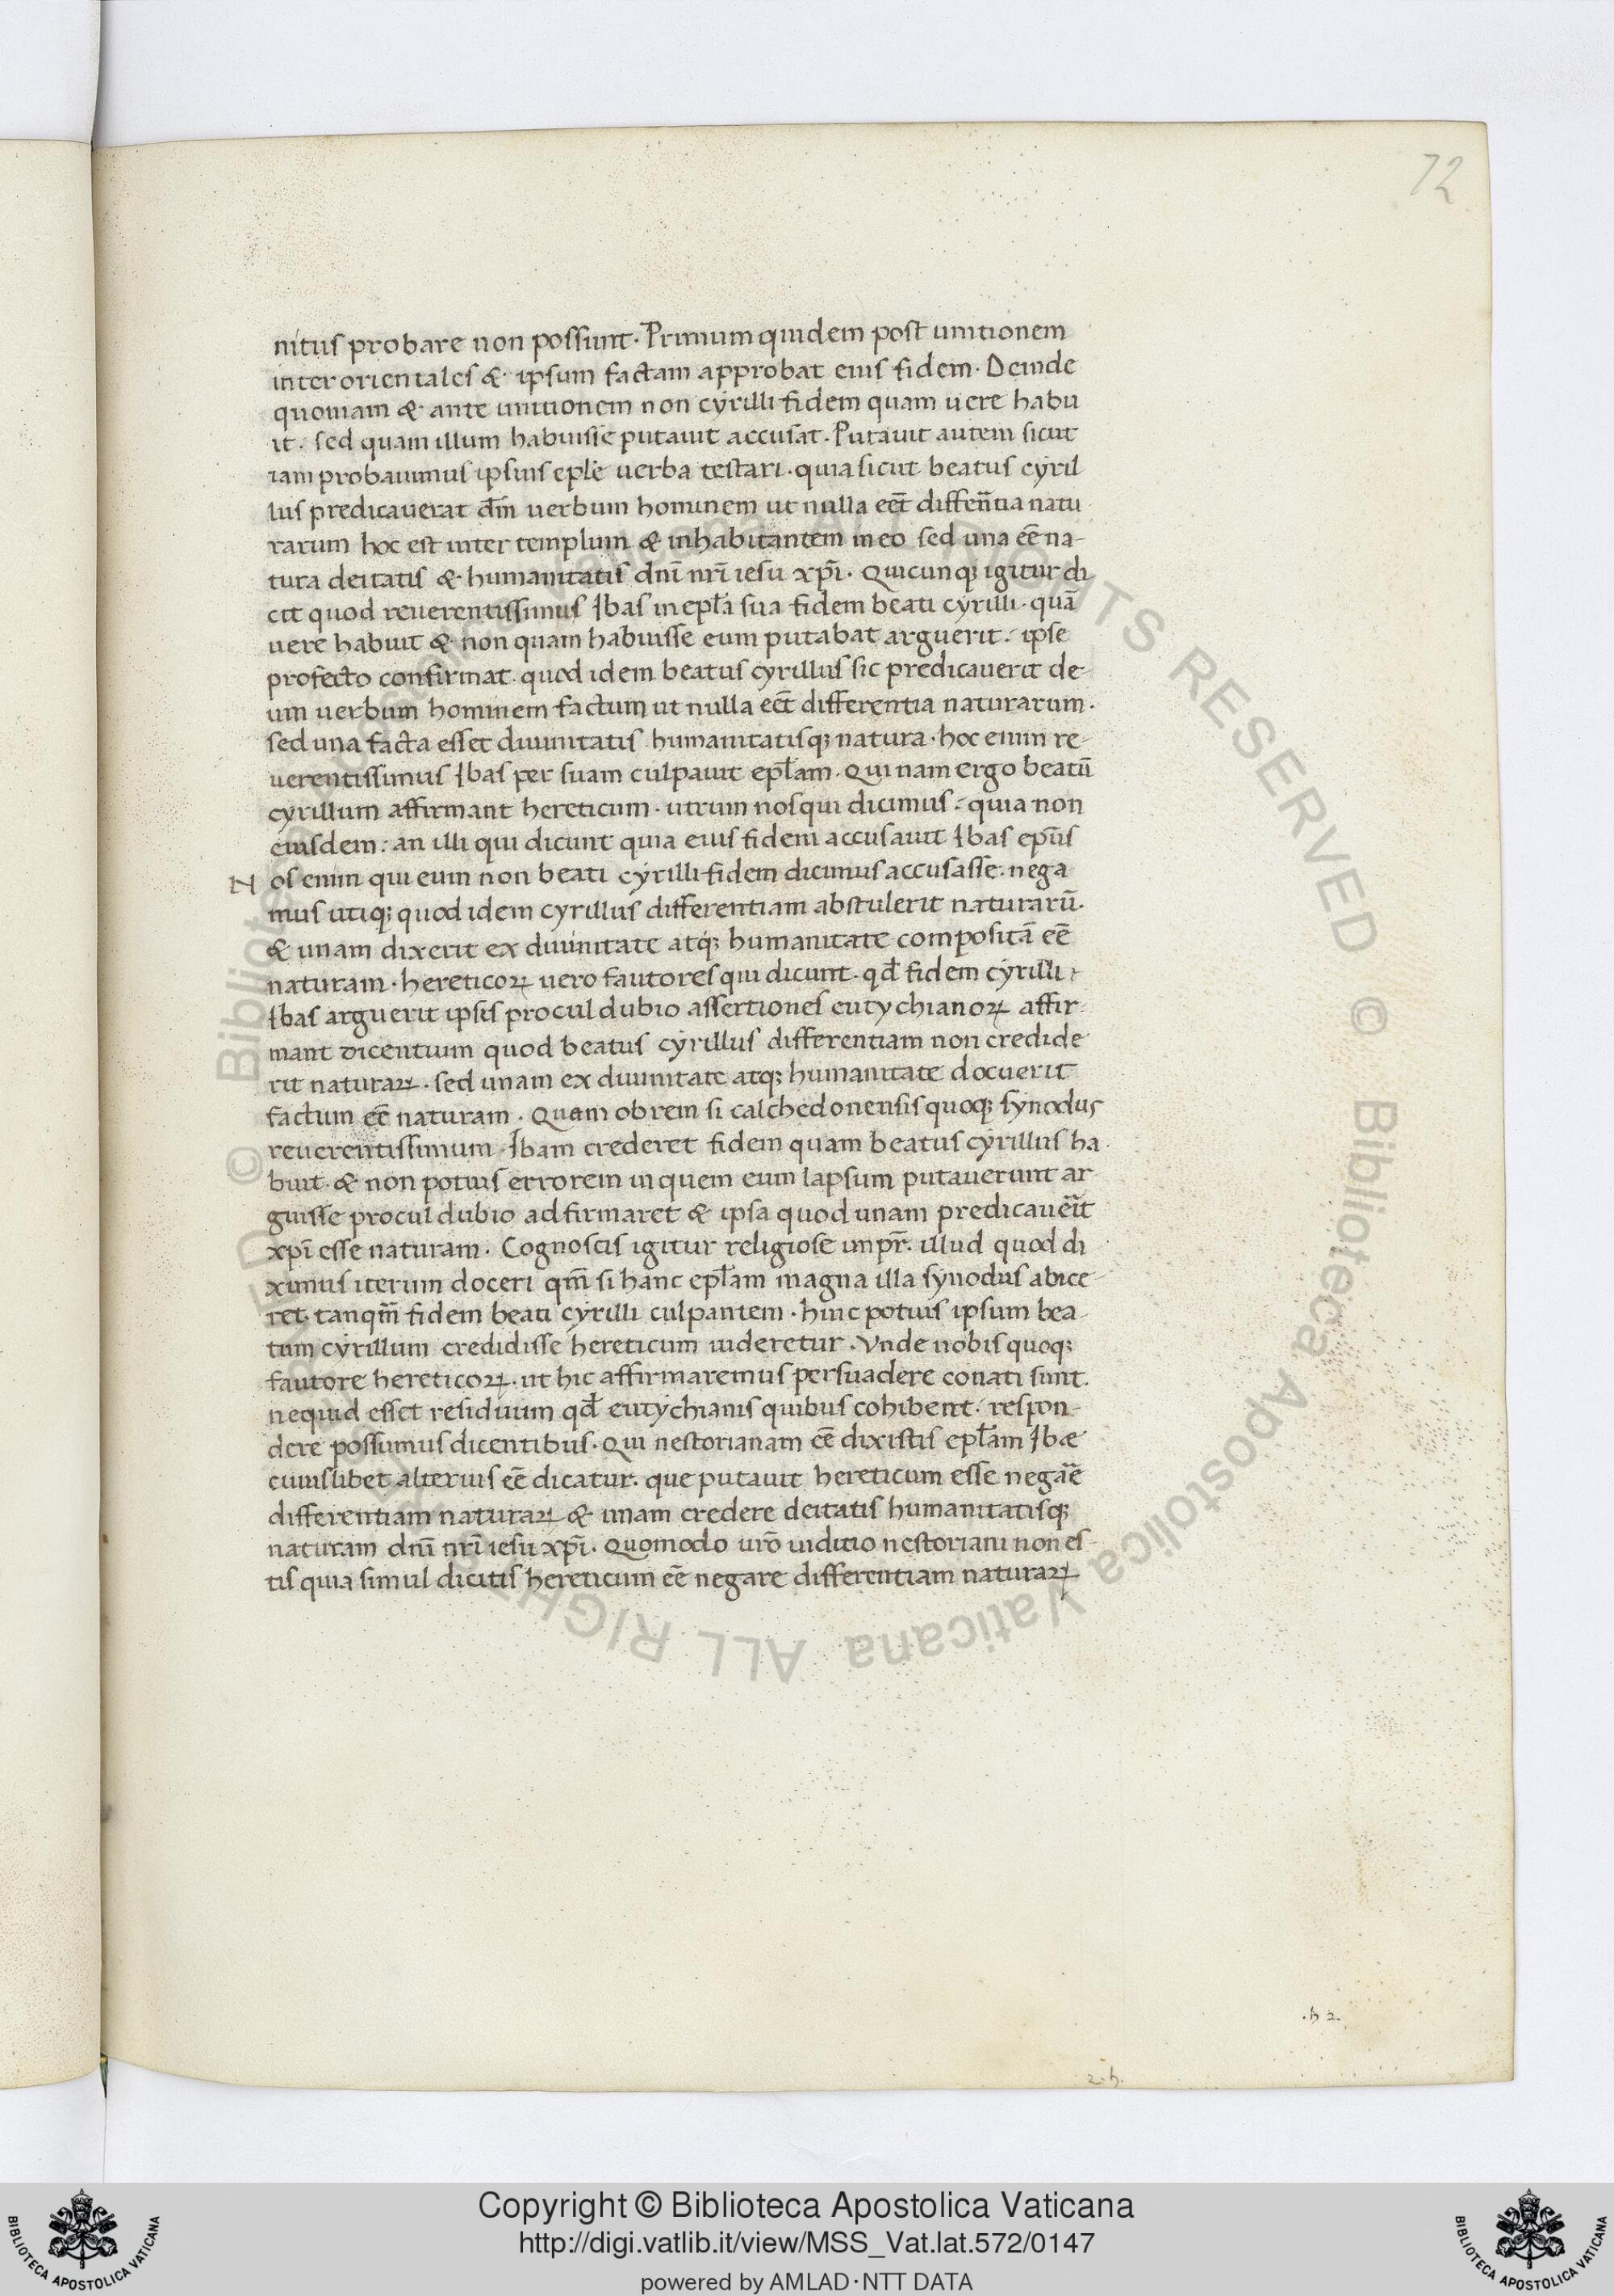 72
nitus probare non possunt. Primum quidem post unitionem
inter orientales & ipsum factam approbat eius fidem. Deinde
quoniam & ante unitionem non cyrilli fidem quam uere habu
it. sed quam illum habuisse putauit accusat. Putauit autem sicut
iam probauimus ipsius eplę uerba testari. quia sicut beatus cyril
lus predicauerat dm̄ uerbum hominem ut nulla eēt differ̄tia natu
rarum hoc est inter templum & inhabitantem in eo sed una eē na-
tura deitatis & humanitatis dnī nrī iesu xpī. Quicunq; igitur di
cit quod reuerentissimus Ibas in epl̄a sua fidem beati cyrilli. quā
uere habuit & non quam habuisse eum putabat arguerit. ipse
profecto confirmat. quod idem beatus cyrillus sic predicauerit de-
um uerbum hominem factum ut nulla eēt differentia naturarum.
sed una facta esset diuinitatis humanitatisq; natura. hoc enim re-
uerentissimus Ibas per suam culpauit epl̄am. Qui nam ergo beatū
cyrillum affirmant hereticum. utrum nos qui dicimus. quia non
eiusdem: an illi qui dicunt quia eius fidem accusauit Ibas ep̄us
N os enim qui eum non beati cyrilli fidem dicimus accusasse. nega
mus utiq; quod idem cyrillus differentiam abstulerit naturarū.
& unam dixerit ex diuinitate atq; humanitate compositā eē
naturam. hereticoꝝ uero fautores qui dicunt. qd̄ fidem cyrilli
Ibas arguerit ipsis procul dubio assertiones eutychianoꝝ affir-
mant dicentium quod beatus cyrillus differentiam non credide
rit naturaꝝ. sed unam ex diuinitate atq; humanitate docuerit
factum eē naturam. Quam obrem si calchedonensis quoq; synodus
reuerentissimum Ibam crederet fidem quam beatus cyrillus ha
buit. & non potius errorem in quem eum lapsum putauerunt ar
guisse procul dubio adfirmaret & ipsa quod unam predicauer̄it
xpī esse naturam. Cognoscis igitur religiose impr̄. illud quod di
ximus iterum doceri qm̄ si hanc epl̄am magna illa synodus abice-
ret. tanqm̄ fidem beati cyrilli culpantem. hinc potius ipsum bea-
tum cyrillum credidisse hereticum uideretur. Vnde nobis quoq;
fautore hereticoꝝ. ut hic affirmaremus persuadere conati sunt.
nequid esset residuum qd̄ eutychianis quibus cohibent. respon-
dere possumus dicentibus. Qui nestorianam eē dixistis epl̄am Ibæ
cuiuslibet alterius eē dicatur. que putauit hereticum esse negar̄e
differentiam naturaꝝ & unam credere deitatis humanitatisq;
naturam dnī nrī iesu xpī. Quomodo ur̄o uiditio nestoriani non es-
tis quia simul dicitis hereticum eē negare differentiam naturaꝝ
.h 2.
2.h.
© Biblioteca Apostolica Vaticana ALL RIGHTS RESERVED
Copyright © Biblioteca Apostolica Vaticana
http://digi.vatlib.it/view/MSS_Vat.lat.572/0147
powered by AMLAD·NTT DATA
BIBLIOTECA APOSTOLICA VATICANA
BIBLIOTECA APOSTOLICA VATICANA